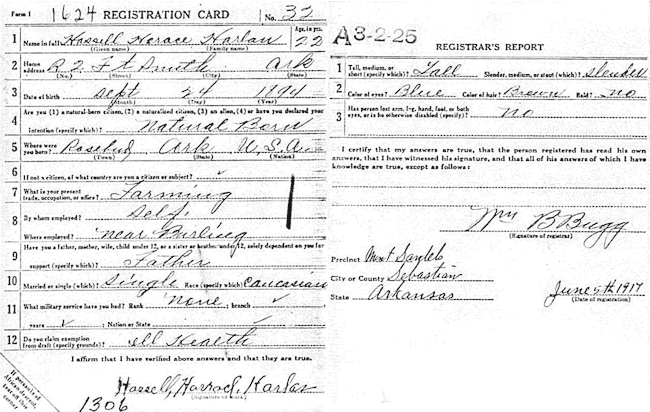 Form 1 1624 REGISTRATION CARD No. 32
1 Name in full Hassell Horace Harlan Age, in yrs. 22
(Given name) (Family name)
2 Home address R 2 Ft Smith Ark
(No.) (Street) (City) (State)
3 Date of birth Sept 24 1894
(Month) (Day) (Year)
4 Are you (1) a natural-born citizen, (2) a naturalized citizen, (3) an alien, (4) or have you declared your
intention (specify which)? Natural Born
5 Where were you born? Rosebud Ark U.S.A.
(Town) (State) (Nation)
6 If not a citizen, of what country are you a citizen or subject?
7 What is your present trade, occupation, or office? Farming
8 By whom employed? Self.
Where employed? near Burling
9 Have you a father, mother, wife, child under 12, or a sister or brother under 12, solely dependent on you for
support (specify which)? Father
10 Married or single (which)? Single Race (specify which)? Caucasian
11 What military service have you had? Rank None ; branch ✓
years ✓ ; Nation or State ✓
12 Do you claim exemption from draft (specify grounds)? ill Health
I affirm that I have verified above answers and that they are true.
Hassell, Harrace, Harlan
(Signature or mark)
If person is of African descent, tear off this corner
1306
A3-2-25
REGISTRAR'S REPORT
1 Tall, medium, or short (specify which)? Tall Slender, medium, or stout (which)? slender
2 Color of eyes? Blue Color of hair? Brown Bald? No
3 Has person lost arm, leg, hand, foot, or both eyes, or is he otherwise disabled (specify)? No
I certify that my answers are true, that the person registered has read his own
answers, that I have witnessed his signature, and that all of his answers of which I have
knowledge are true, except as follows:
Wm B Bugg
(Signature of registrar)
Precinct Mont Sandels
City or County Sebastian
State Arkansas June 5th 1917
(Date of registration)